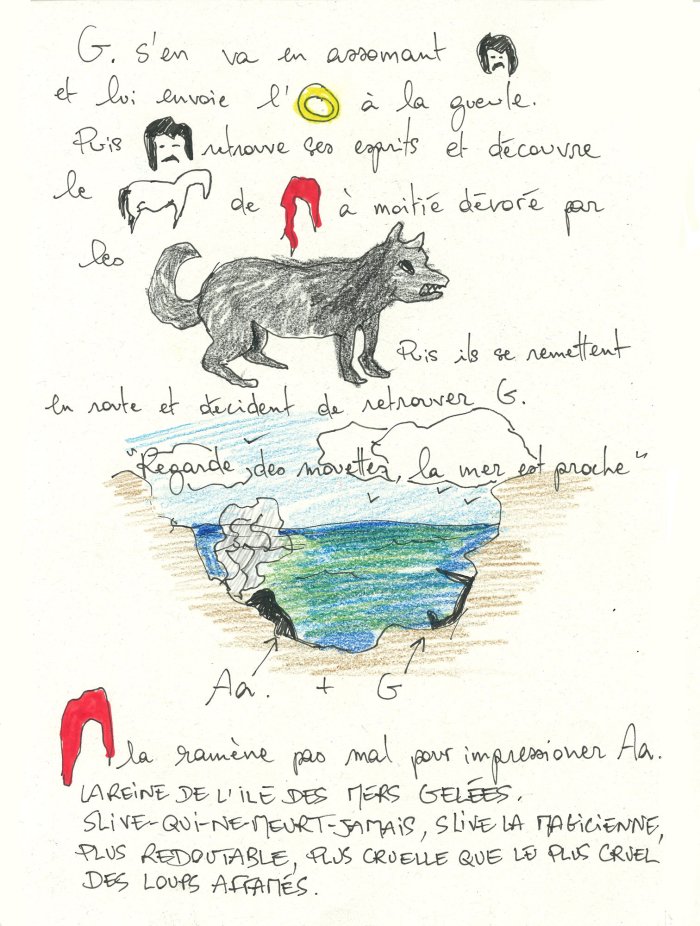 G. s'en va en assomant
et lui envoie l' à la gueule.
Puis retrouve ses esprits et découvre
le de à moitié dévoré par
les
Puis ils se remettent
en route et décident de retrouver G.
"Regarde, des mouettes, la mer est proche"
Aa. + G
la ramène pas mal pour impressioner Aa.
LA REINE DE L'ILE DES MERS GELÉES.
SLIVE-QUI-NE-MEURT-JAMAIS, SLIVE LA MAGICIENNE,
PLUS REDOUTABLE, PLUS CRUELLE QUE LE PLUS CRUEL
DES LOUPS AFFAMÉS.